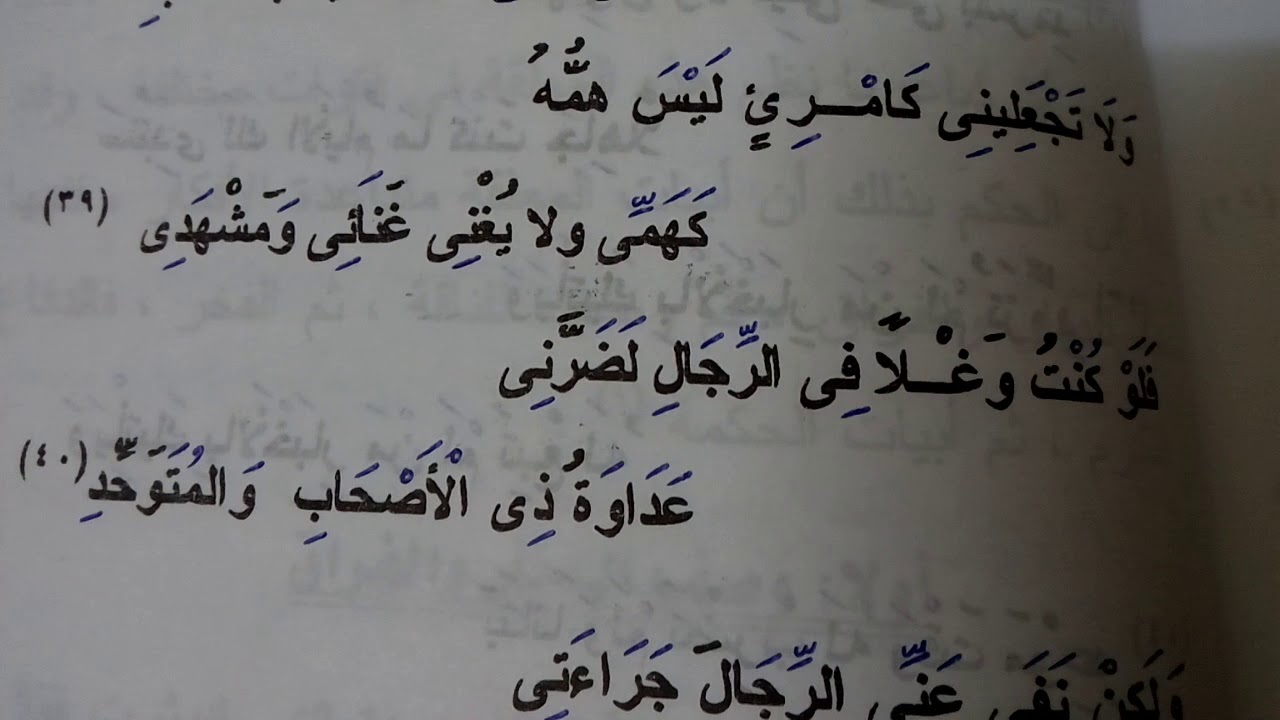 وَلَا تَجْعَلِينِي كَامْرِئٍ لَيْسَ هَمُّهُ
كَهَمِّى ولا يُغْنِى غَنَائِى وَمَشْهَدِى (٣٩)
فَلَوْ كُنْتُ وَغْلاً فِى الرِّجَالِ لَضَرَّنِى
عَدَاوَةُ ذِى الْأَصْحَابِ وَالمُتَوَحِّدِ (٤٠)
وَلَكِنْ نَفَى عَنِّى الرِّجَالَ جَرَاءَتِى